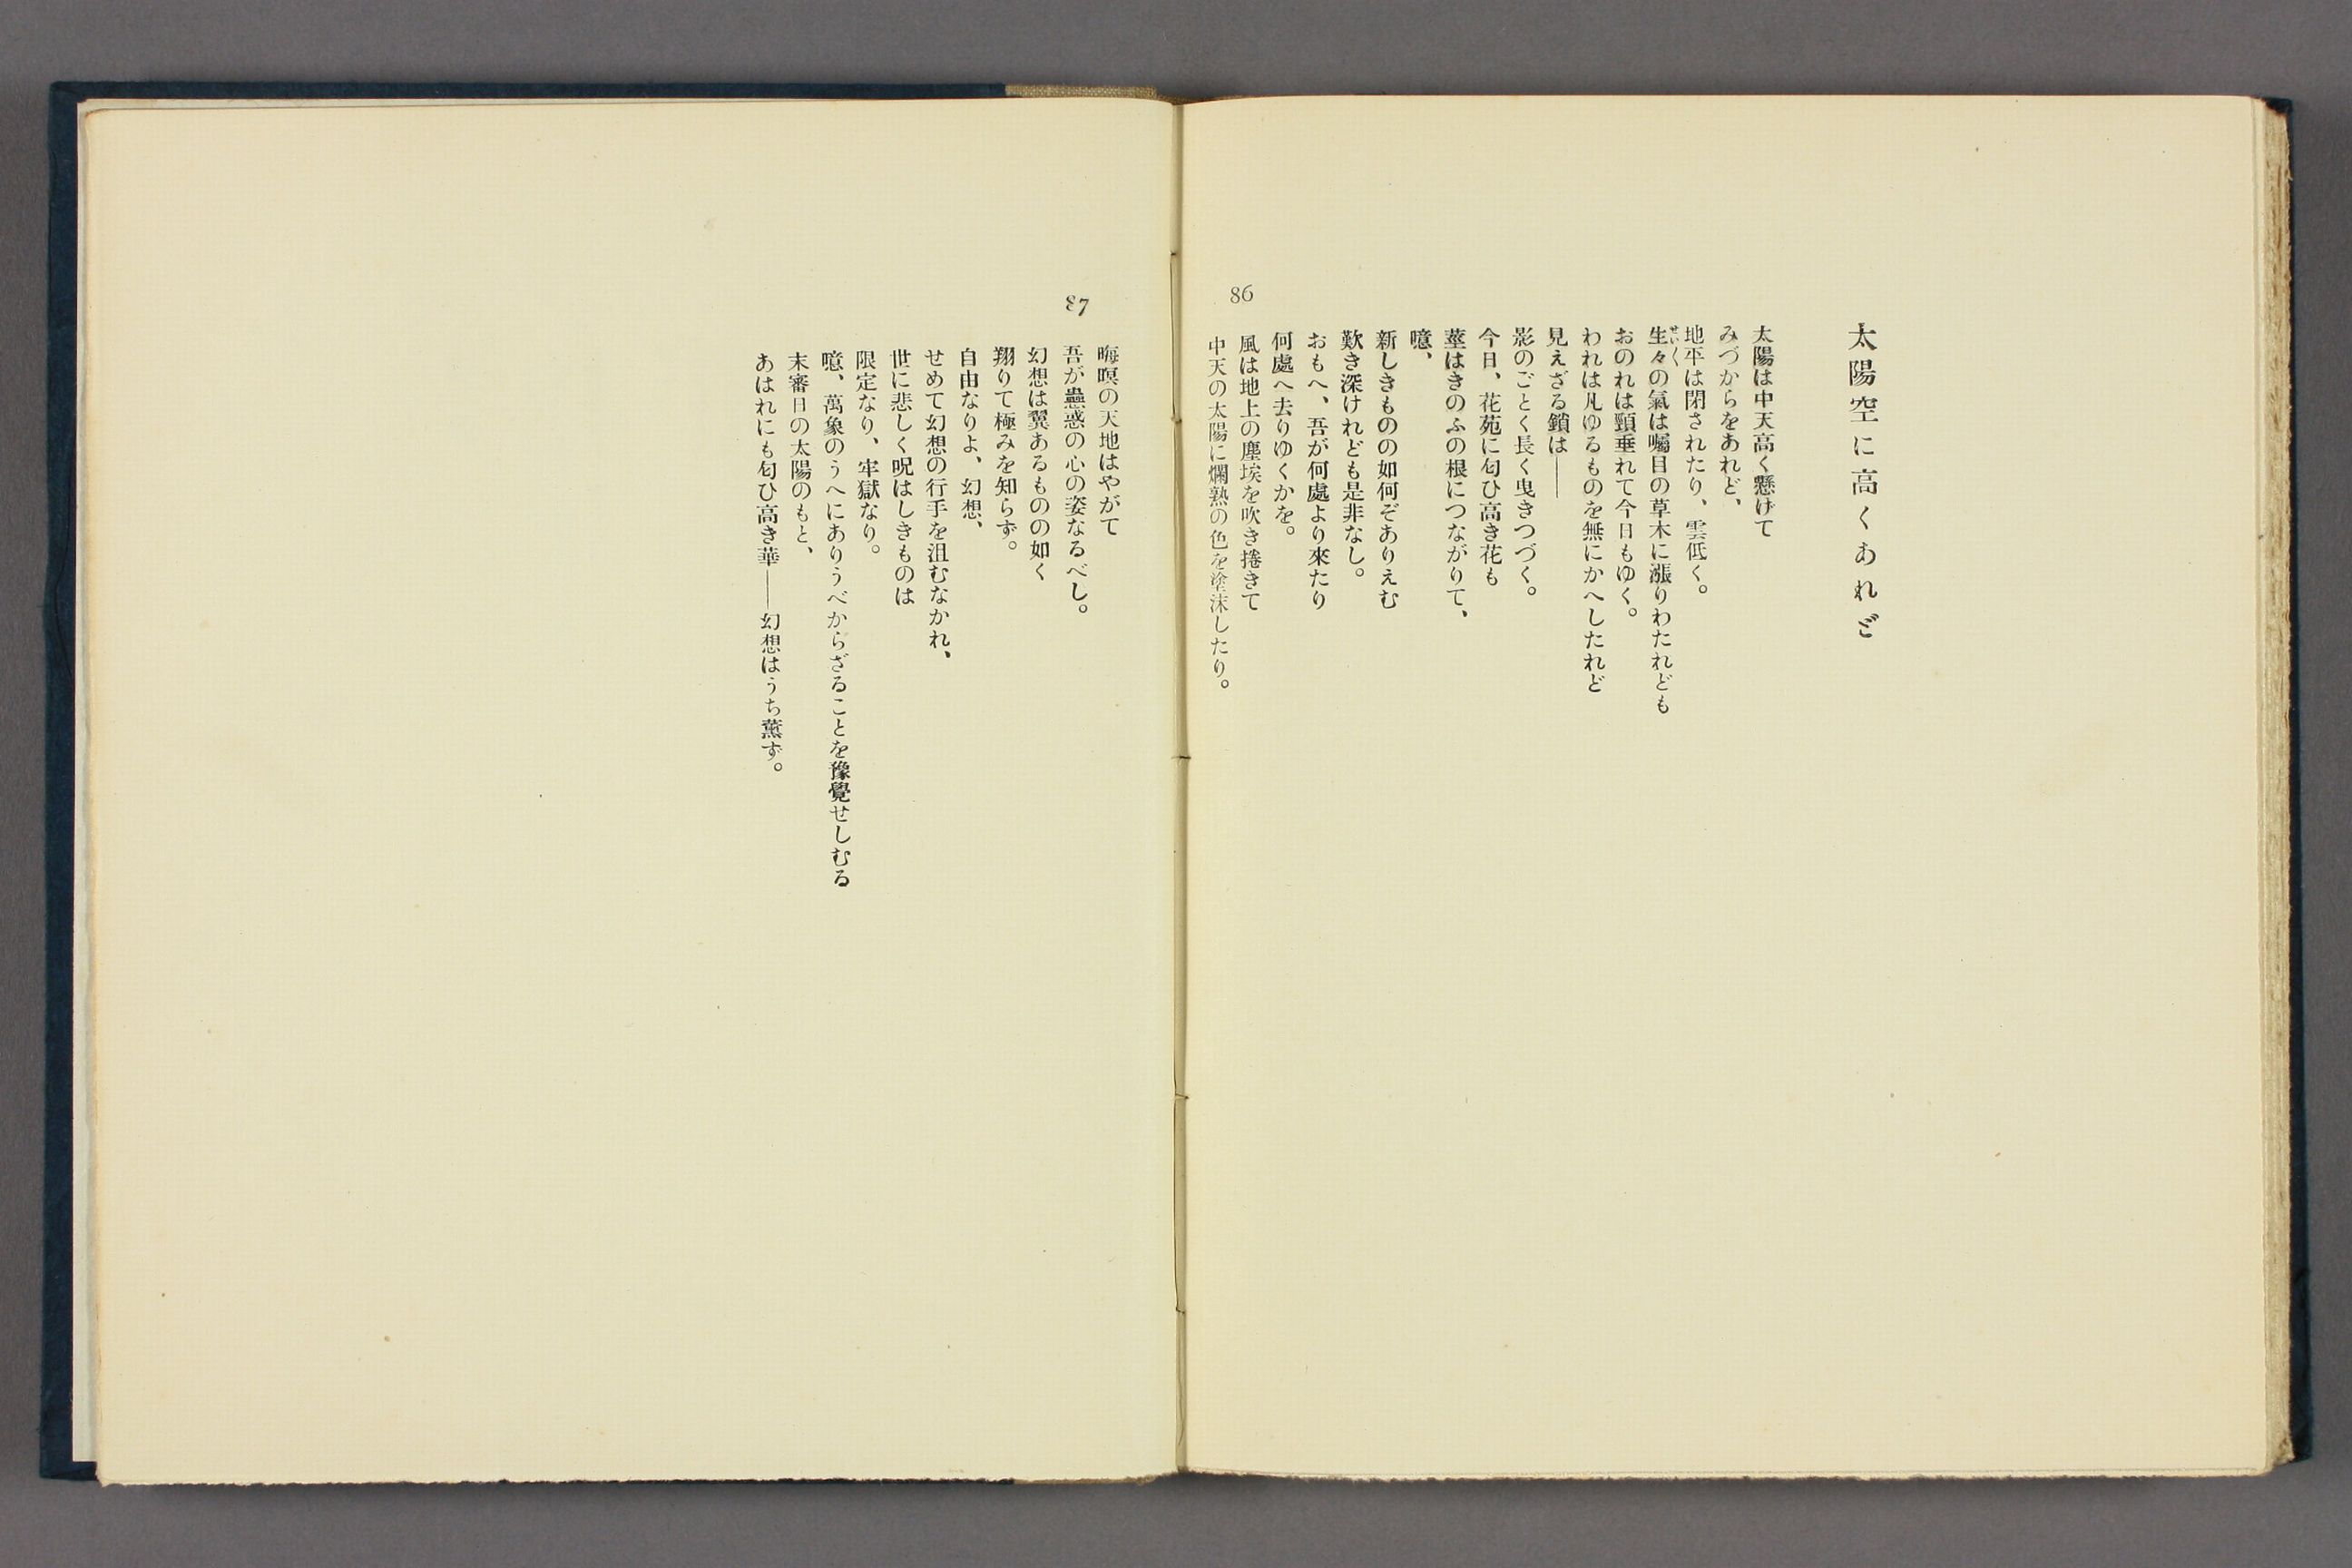 太陽空に高くあれど
太陽は中天高く懸けて
みづからをあれど、
地平は閉されたり、雲低く。
生々の氣は囑目の草木に漲りわたれども
せい〱
おのれは頸垂れて今日もゆく。
われは凡ゆるものを無にかへしたれど
見えざる鎖は――
影のごとく長く曳きつづく。
今日、花苑に匂ひ高き花も
莖はきのふの根につながりて、
噫、
新しきものの如何ぞありえむ
歎き深けれども是非なし。
おもへ、吾が何處より來たり
何處へ去りゆくかを。
風は地上の塵埃を吹き捲きて
中天の太陽に爛熟の色を塗沫したり。
86
晦暝の天地はやがて
吾が蠱惑の心の姿なるべし。
幻想は翼あるものの如く
翔りて極みを知らず。
自由なりよ、幻想、
せめて幻想の行手を沮むなかれ、
世に悲しく呪はしきものは
限定なり、牢獄なり。
噫、萬象のうへにありうべからざることを豫覺せしむる
末審日の太陽のもと、
あはれにも匂ひ高き華――幻想はうち薰ず。
87